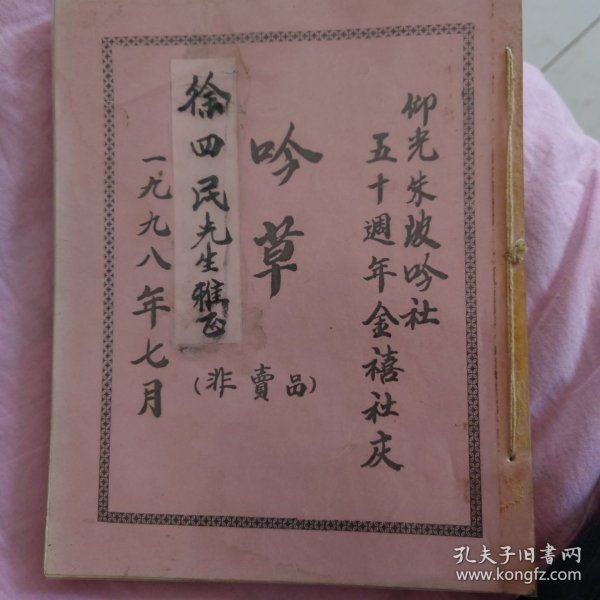 仰光朱波吟社
五十週年金禧社庆
吟草
(非賣品)
徐四民先生雅正
一九九八年七月
孔夫子旧书网
www.kongfz.com